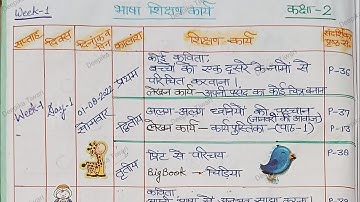 Week-1 भाषा शिक्षण कार्य कक्षा-2
सप्ताह दिवस दिनांक व दिन कालांश शिक्षण-कार्य संदर्शिका पृष्ठ सं.
Week-1 Day-1 01-08-2022 सोमवार
प्रथम
कोई कविता:
बच्चों को एक दूसरे के नामों से P-36
परिचित करवाना।
लेखन कार्य - अपनी पसंद का कोई चित्र बनाना
द्वितीय
अलग-अलग ध्वनियों की पहचान P-37
(जानवरों की आवाज)
लेखन कार्य - कार्यपुस्तिका - (पाठ-1) P-13
तृतीय
प्रिंट से परिचय P-38
BigBook - चिड़िया
कविता